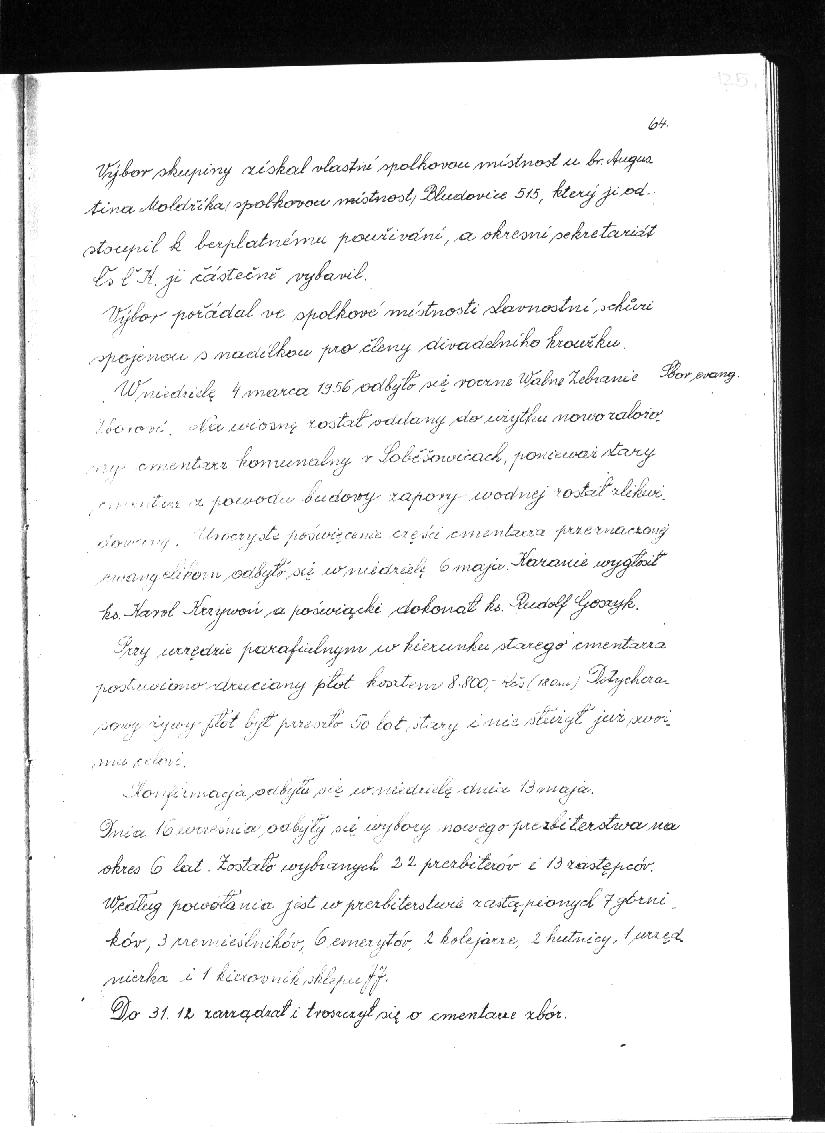 125.
64.
Výbor skupiny získal vlastní spolkovou místnost u br. Augus
tina Moldříka, spolkovou místnost, Bludovice 515, který ji od-
stoupil k bezplatnému používání, a okresní sekretariát
Čs Č K. ji částečně vybavil.
Výbor pořádal ve spolkové místnosti slavnostní schůzi
spojenou s nadílkou pro členy divadelního kroužku.
W niedzielę 4 marca 1956 odbyło się roczne Walne Zebranie Sbor evang.
Zborowe. Na wiosnę został oddany do użytku nowozałożo
ny cmentarz komunalny v Soběšowicach, ponieważ stary
cmentarz z powodu budovy zapory wodnej został zlikwi-
dowany. Uroczyste poświęcenie części cmentarza przeznaczonej
ewangelikom odbyło się w niedzielę 6 maja. Kazanie wygłosił
ks. Karol Krzywoń, a poświącki dokonał ks. Rudolf Goszyk.
Przy urzędzie parafialnym w kierunku starego cmentarza
postawiono druciany płot kosztem 8.800,- Kčs (180m) Dotychcza-
sowy żywy płot był przeszło 50 lat stary i nie służył już swoi-
mu celowi.
Konfirmacja odbyła się w niedzielę dnia 13 maja.
Dnia 16 września odbyły się wybory nowego prezbiterstwa na
okres 6 lat. Zostało wybranych 22 prezbiteróv i 13 zastępcóv.
Według powołania jest w prezbiterstwie zastąpionych 7 górni-
kóv, 3 rzemieślnikóv, 6 emerytóv, 2 kolejarze, 2 hutnicy, 1 urzęd
niczka i 1 kierovnik sklepu JJ.
Do 31. 12 zarządzał i troszczył się o cmentarze zbór.